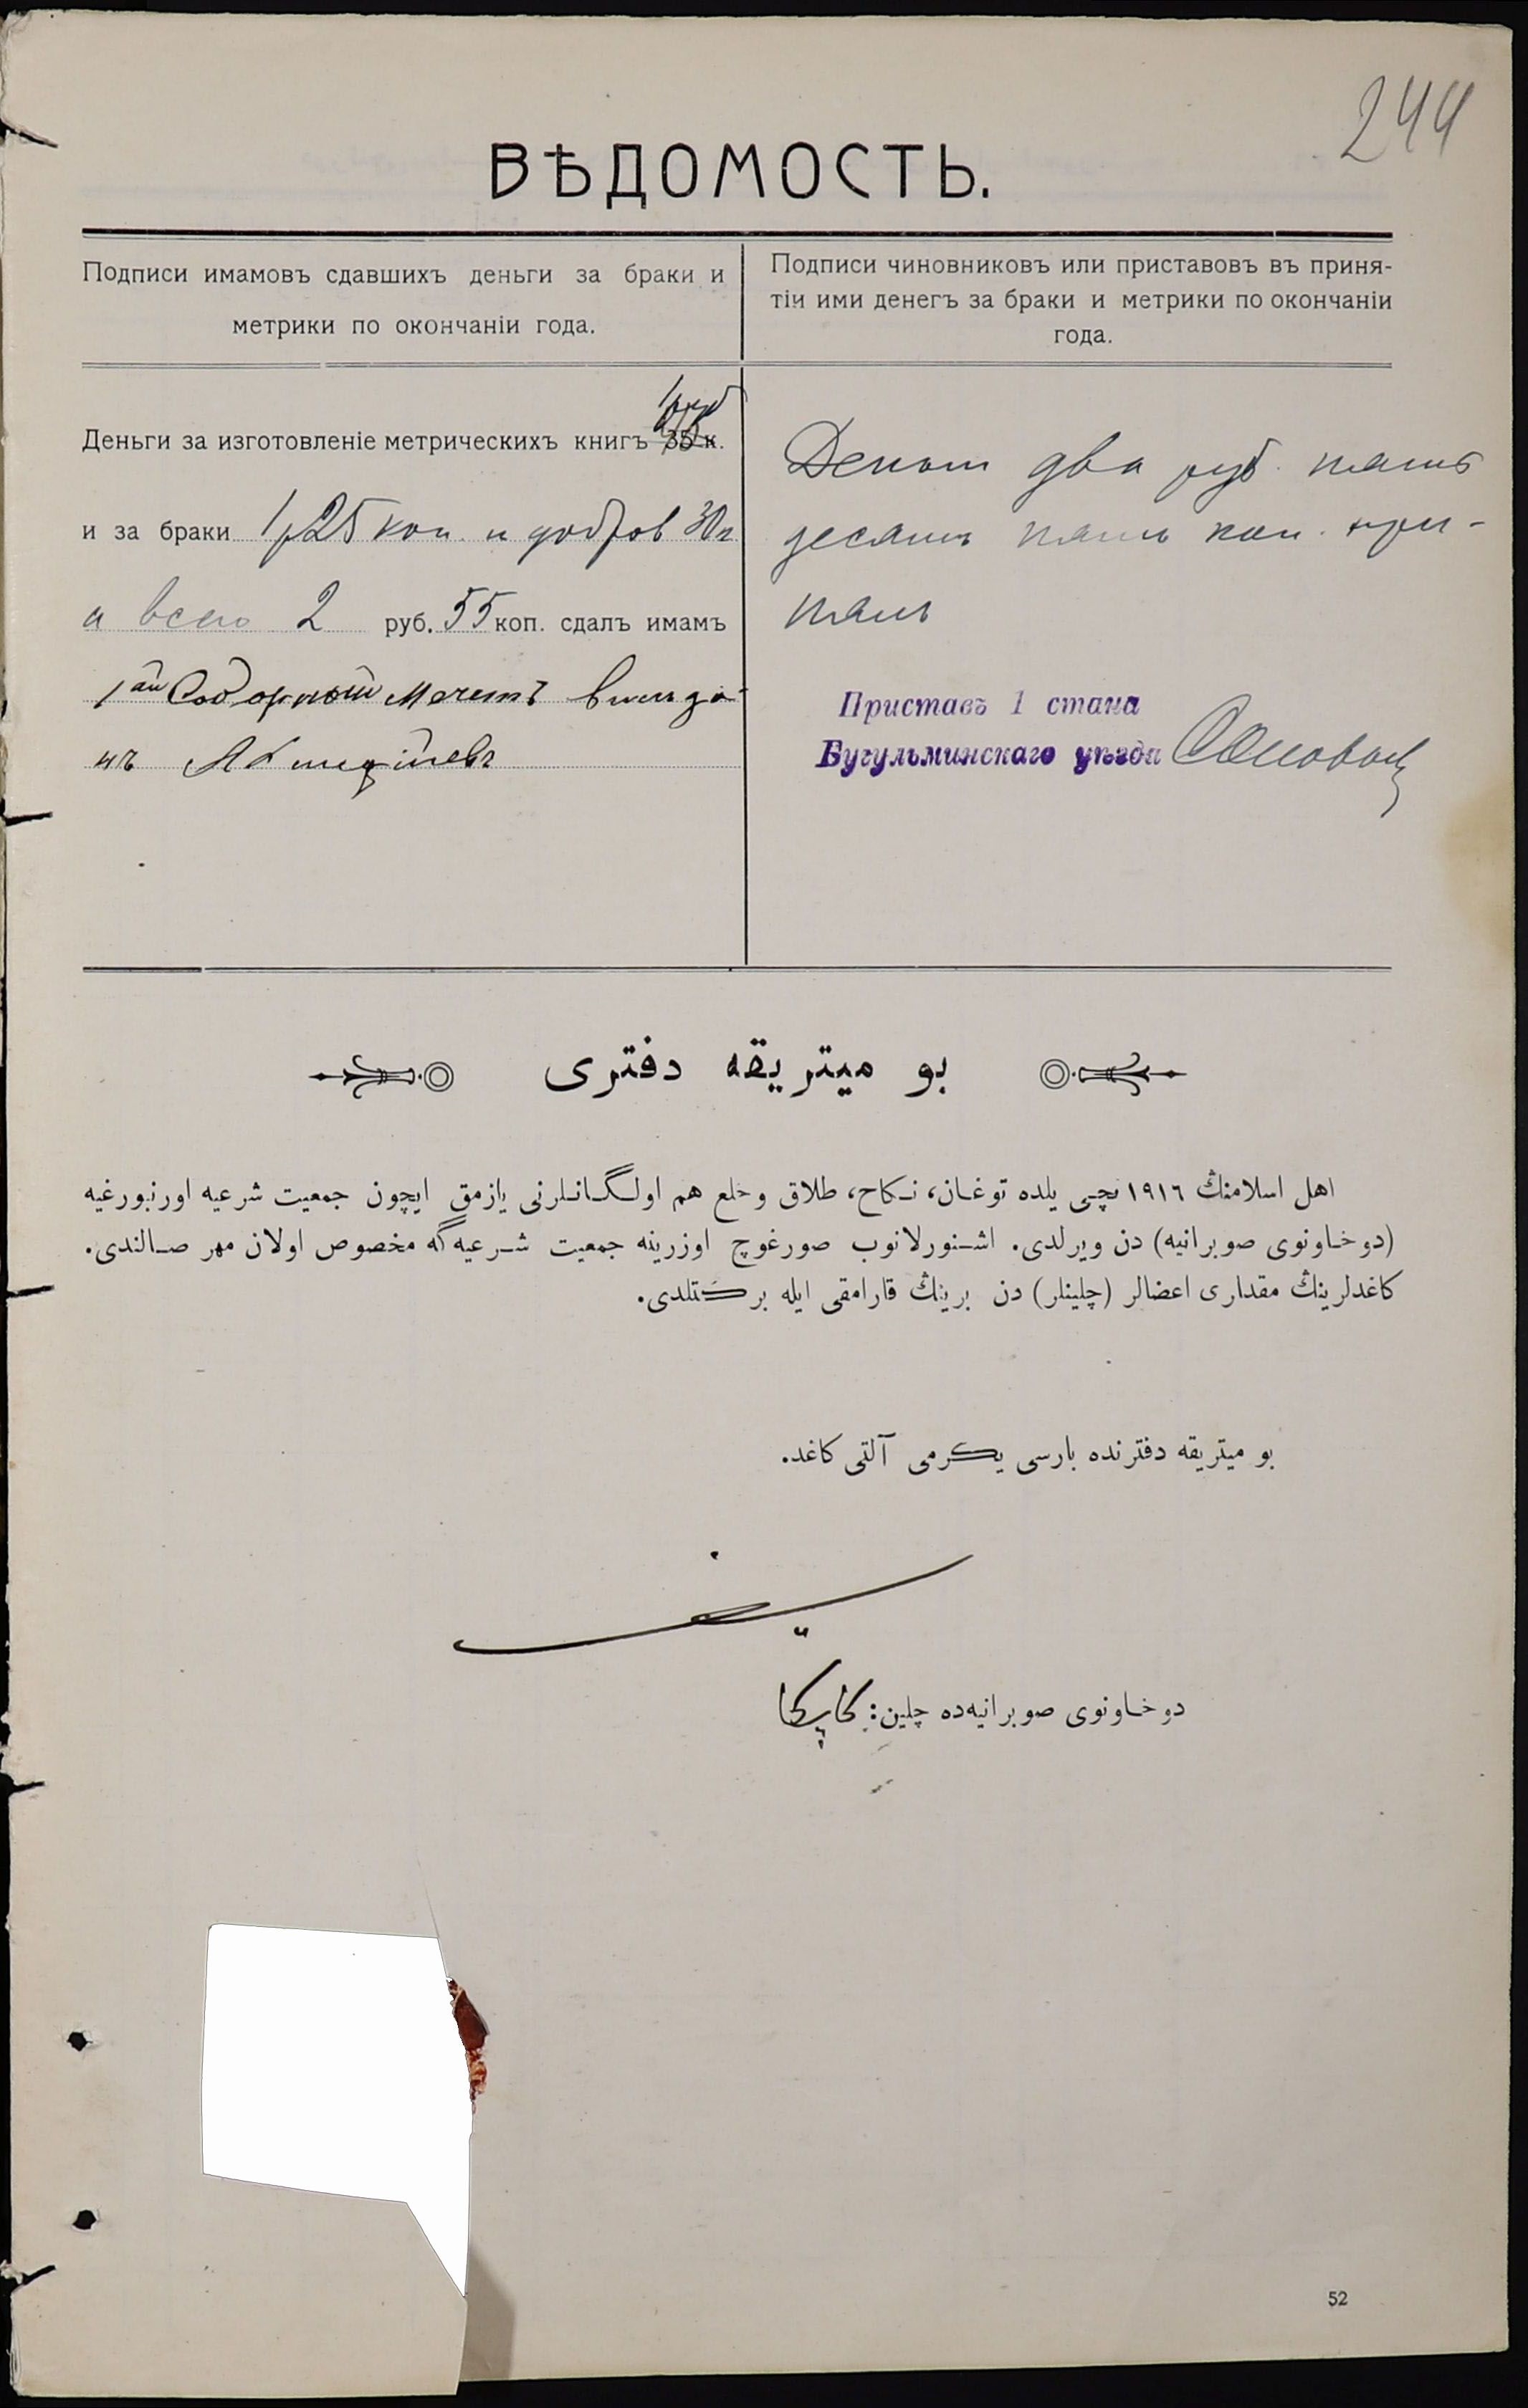 244
ВѢДОМОСТЬ.
Подписи имамовъ сдавшихъ деньги за браки и
метрики по окончаніи года.
Подписи чиновниковъ или приставовъ въ приня-
тіи ими денегъ за браки и метрики по окончаніи
года.
1 руб
Деньги за изготовленіе метрическихъ книгъ 35 к.
и за браки 1р 25 коп. и добров 30к
а всего 2 руб. 55 коп. сдалъ имамъ
1ай Соборной мечеть
Денги два руб. пять
десять пять коп. при-
нялъ
Приставъ 1 стана
Бугульминскаго уѣзда
بو ميتريقه دفترى
اهل اسلامنڭ ١٩١٦ نچى يلده توغان، نكاح، طلاق وخلع هم اولگانلرنى يازمق ايچون جمعيت شرعيه اورنبورغيه
(دوخاونوى صوبرانيه) دن ويرلدى. اشنورلانوب صورغوچ اوزرينه جمعيت شرعيه گه مخصوص اولان مهر صالندى.
كاغدلرينڭ مقدارى اعضالر (چلينلر) دن برينڭ قارامقى ايله بركتلدى.
بو ميتريقه دفترنده بارسى يكرمى آلتى كاغد.
دوخاونوى صوبرانيه‌ده چلين:
52